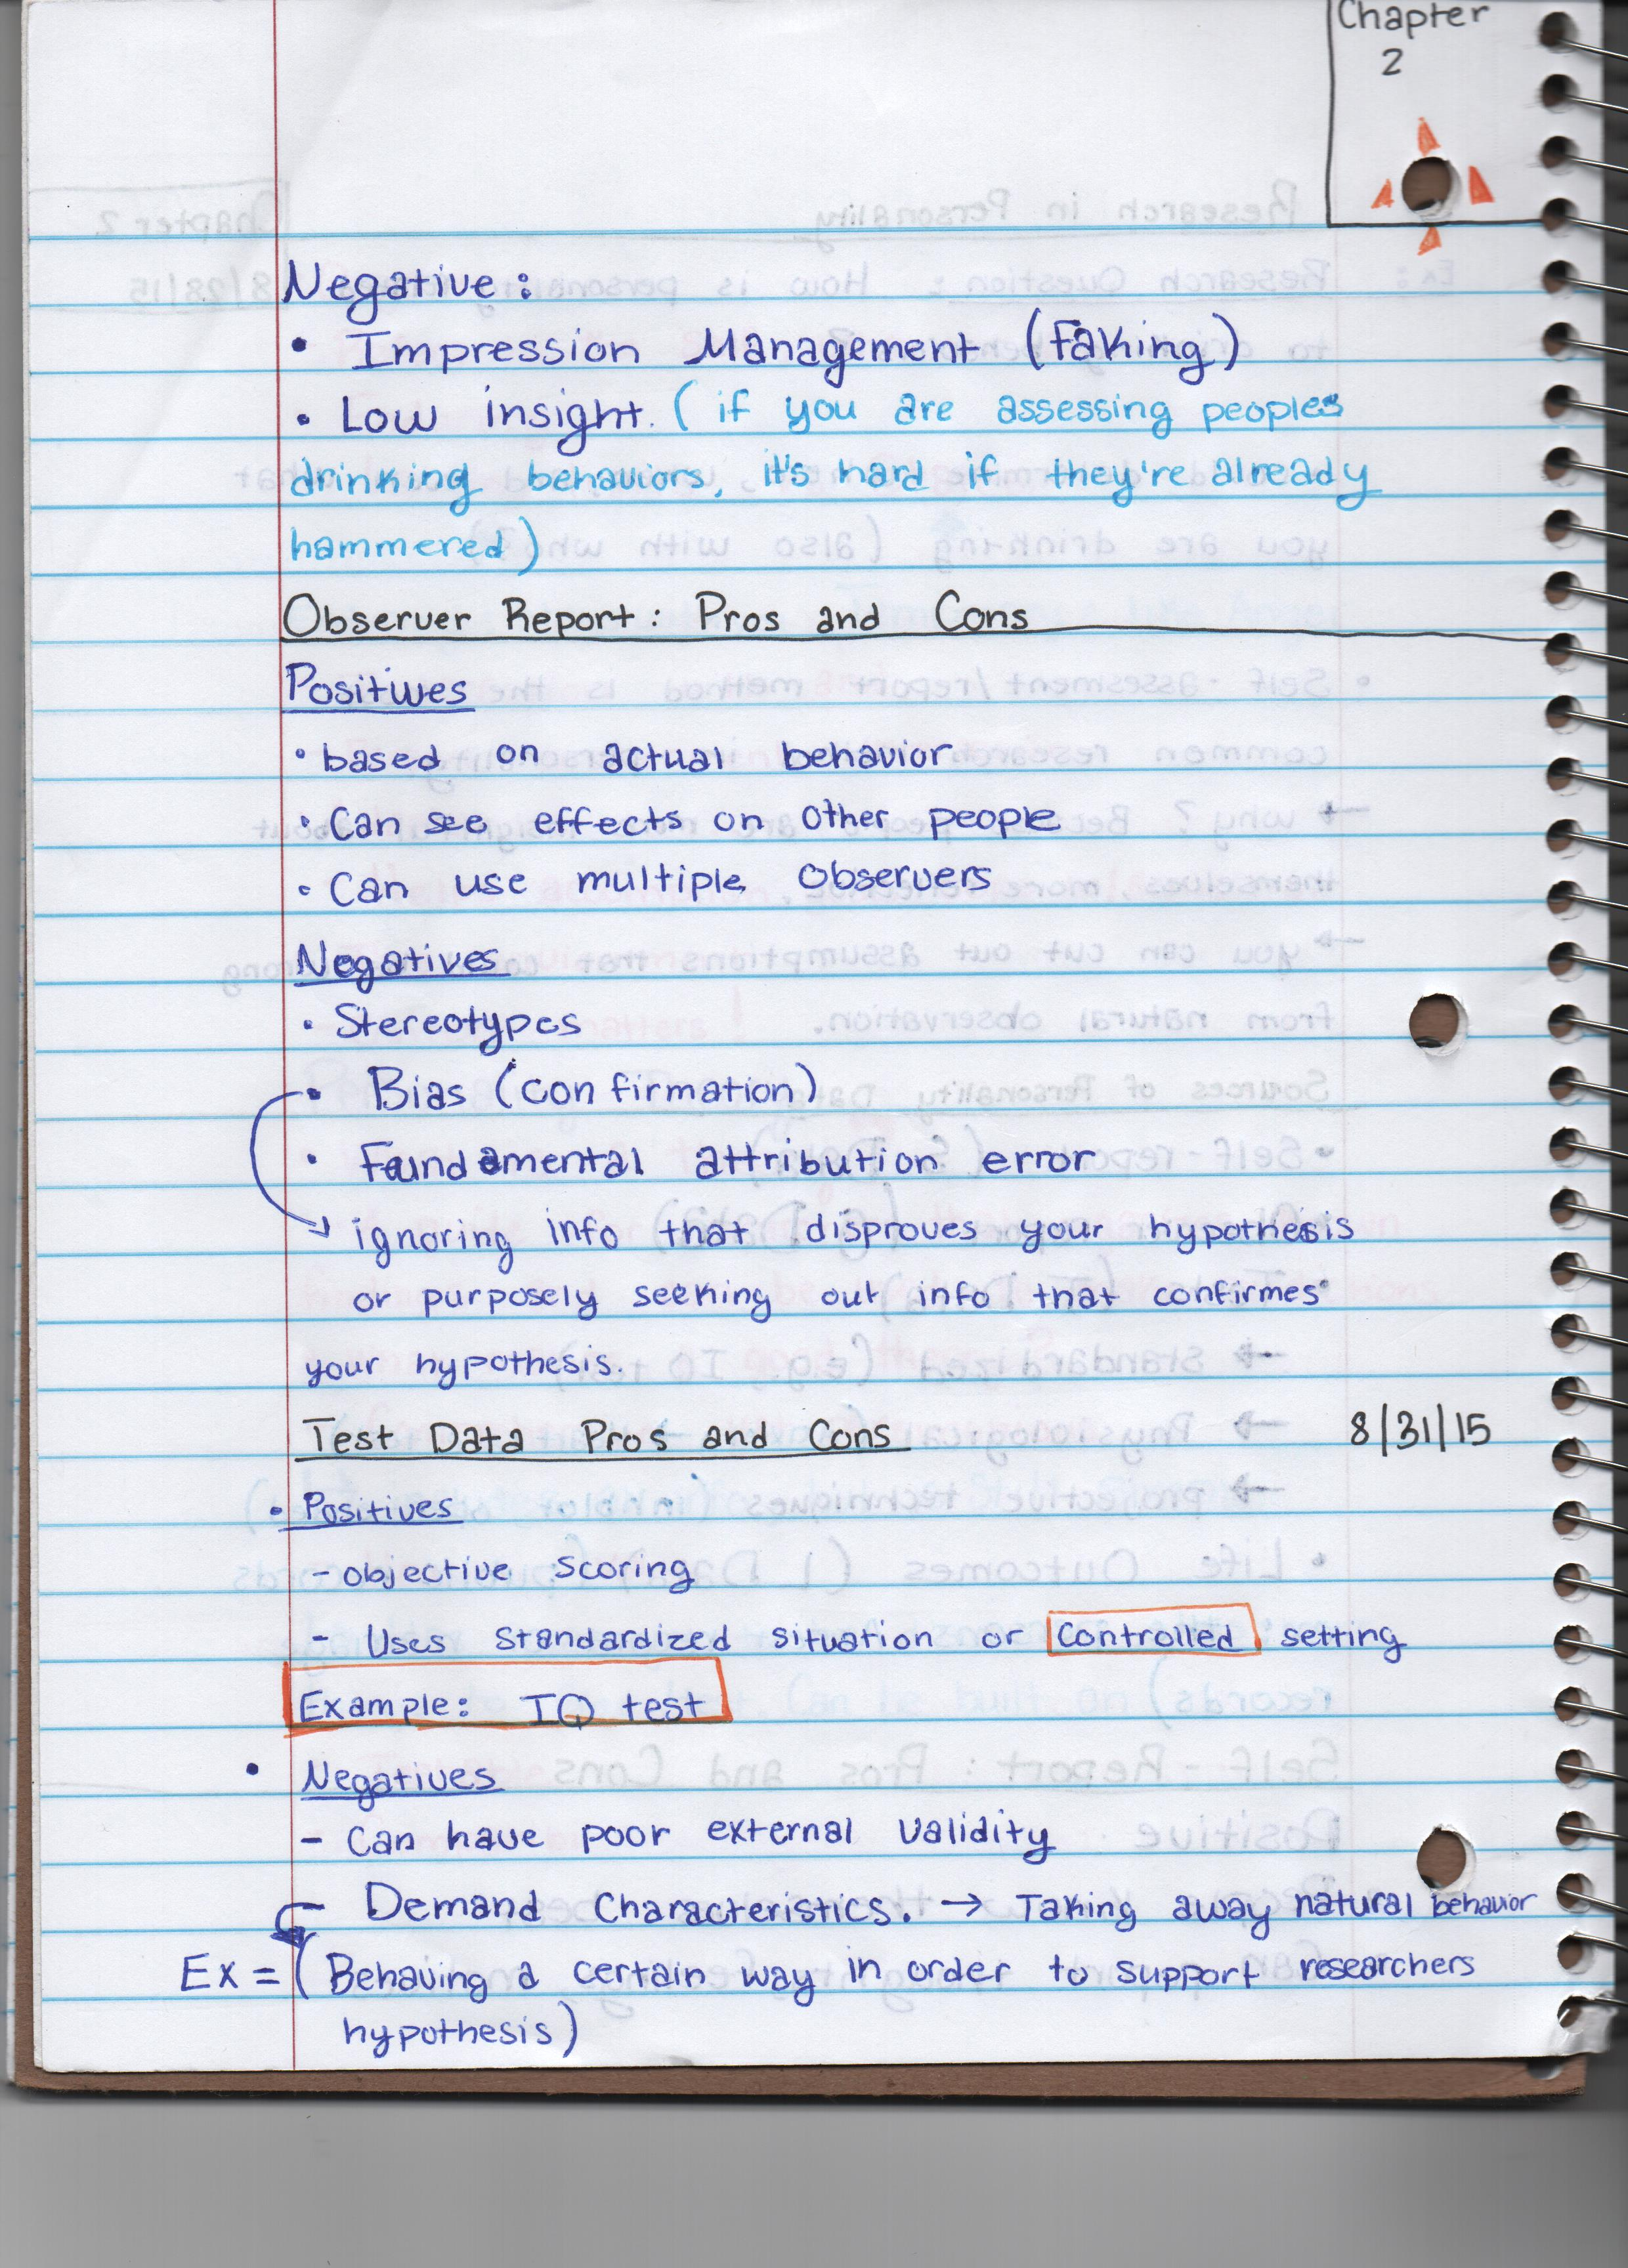 Chapter
2
Negative:
• Impression Management (Faking)
• Low insight. (if you are assessing peoples
drinking behaviors, it's hard if they're already
hammered)
Observer Report: Pros and Cons
Positives
• based on actual behavior
• Can see effects on other people
• Can use multiple Observers
Negatives
• Stereotypes
• Bias (confirmation)
• Fundamental attribution error
→ ignoring info that disproves your hypothesis
or purposely seeking out info that confirmes
your hypothesis.
Test Data Pros and Cons 8/31/15
• Positives
- objective scoring
- Uses standardized situation or Controlled setting
Example: IQ test
• Negatives
- Can have poor external validity
- Demand Characteristics. → Taking away natural behavior
Ex = (Behaving a certain way in order to support researchers
hypothesis)